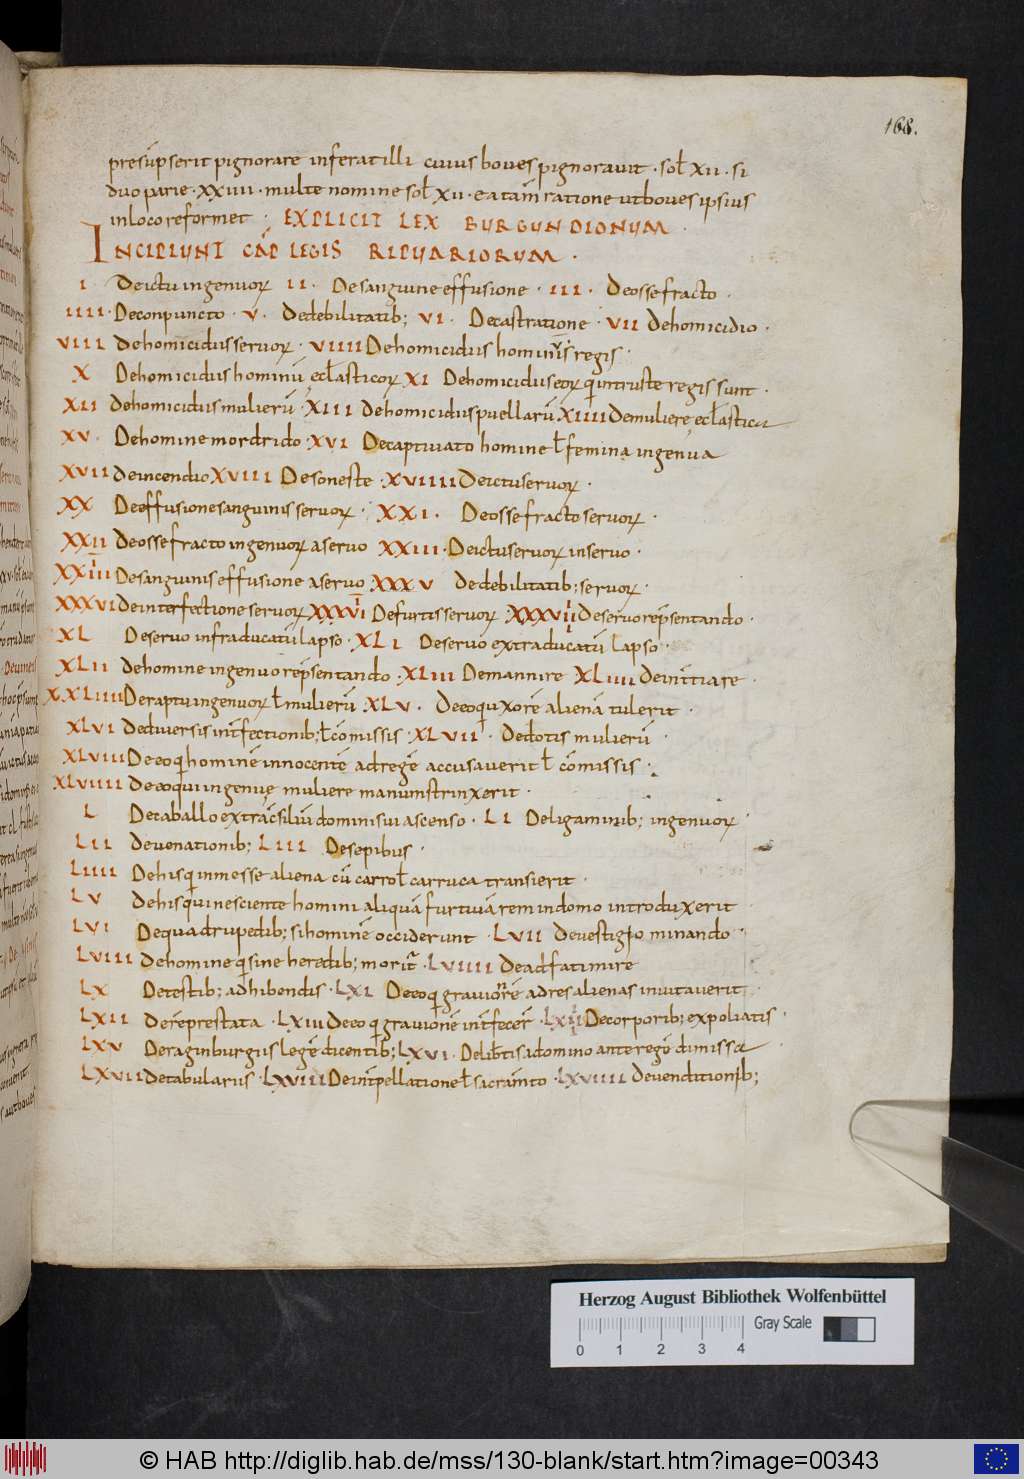 168.
presūpserit pignorare inferat illi cuius boves pignoravit · sol XII · si
duo parie · XXIIII · multe nomine sol XII et a tam̄ ratione ut boves ipsius
in loco reformet · EXPLICIT LEX BURGUNDIONUM
INCIPIUNT CAP LEGIS RIPUARIORUM ·
I De ictu ingenuoꝝ II · De sanguine effusione · III · De osse fracto ·
IIII · De conpuncto · V · De debilitatib; VI · De castratione · VII De homicidio ·
VIII De homicidiis servoꝝ · VIIII De homicidiis hominis regis ·
X De homicidiis hominū ecl̄asticoꝝ XI De homicidiis eoꝝ qui in truste regis sunt ·
XII De homicidiis mulierū · XIII De homicidiis puellarū XIIII De muliere ecl̄astica
XV · De homine mordrido · XVI De captivato homine ł femina ingenua
XVII De incendio XVIII De soneste · XVIIII De ictu servoꝝ ·
XX De effusione sanguinis servoꝝ · XXI · De osse fracto servoꝝ ·
XXII De osse fracto ingenuoꝝ a servo XXIII · De ictu servoꝝ in servo ·
XXIIII De sanguinis effusione a servo XXXV De debilitatib; servoꝝ ·
XXXVI De interfectione servoꝝ XXXVI De furtis servoꝝ · XXXVII De servo rep̄sentando ·
XL De servo infra ducatū lapso · XLI De servo extra ducatū lapso ·
XLII De homine ingenuo rep̄sentando · XLIII De mannire XLIIII De int̄tiare ·
XXLIIII De raptu ingenuoꝝ ł mulierū XLV · De eo qui uxorē alienā tulerit ·
XLVI De diversis int̄fectionib; ł cōmissis · XLVII · De dotis mulierū ·
XLVIII De eo qui hominē innocentē ad regē accusaverit ł cōmissis ·
XLVIIII De eo qui ingenuę muliere manum strinxerit ·
L De caballo extra c̄siliū domini sui ascenso · LI De ligaminib; ingenuoꝝ
LII De venationib; LIII De sepibus ·
LIIII De his qui in messe aliena cū carro ł carruca transierit ·
LV De his qui nesciente homini aliquā furtivā rem in domo introduxerit
LVI De quadrupedib; si hominē occiderunt · LVII De vestigio minando ·
LVIII De homine qui sine heredib; morit̄ · LVIIII De adfatimire
LX De testib; adhibendis · LXI De eo qui graviorē ad res alienas invitaverit ·
LXII De rē prestata · LXIII De eo qui gravionē int̄fecer̄ · LXII De corporib; expoliatis ·
LXV De raginburgiis legē dicentib; LXVI · De lib̄tis a domino ante regē dimissa
LXVII De tabulariis · LXVIII De int̄pellatione ł sacram̄to · LXVIIII De venditionib;
Herzog August Bibliothek Wolfenbüttel
Gray Scale
0 1 2 3 4
© HAB http://diglib.hab.de/mss/130-blank/start.htm?image=00343